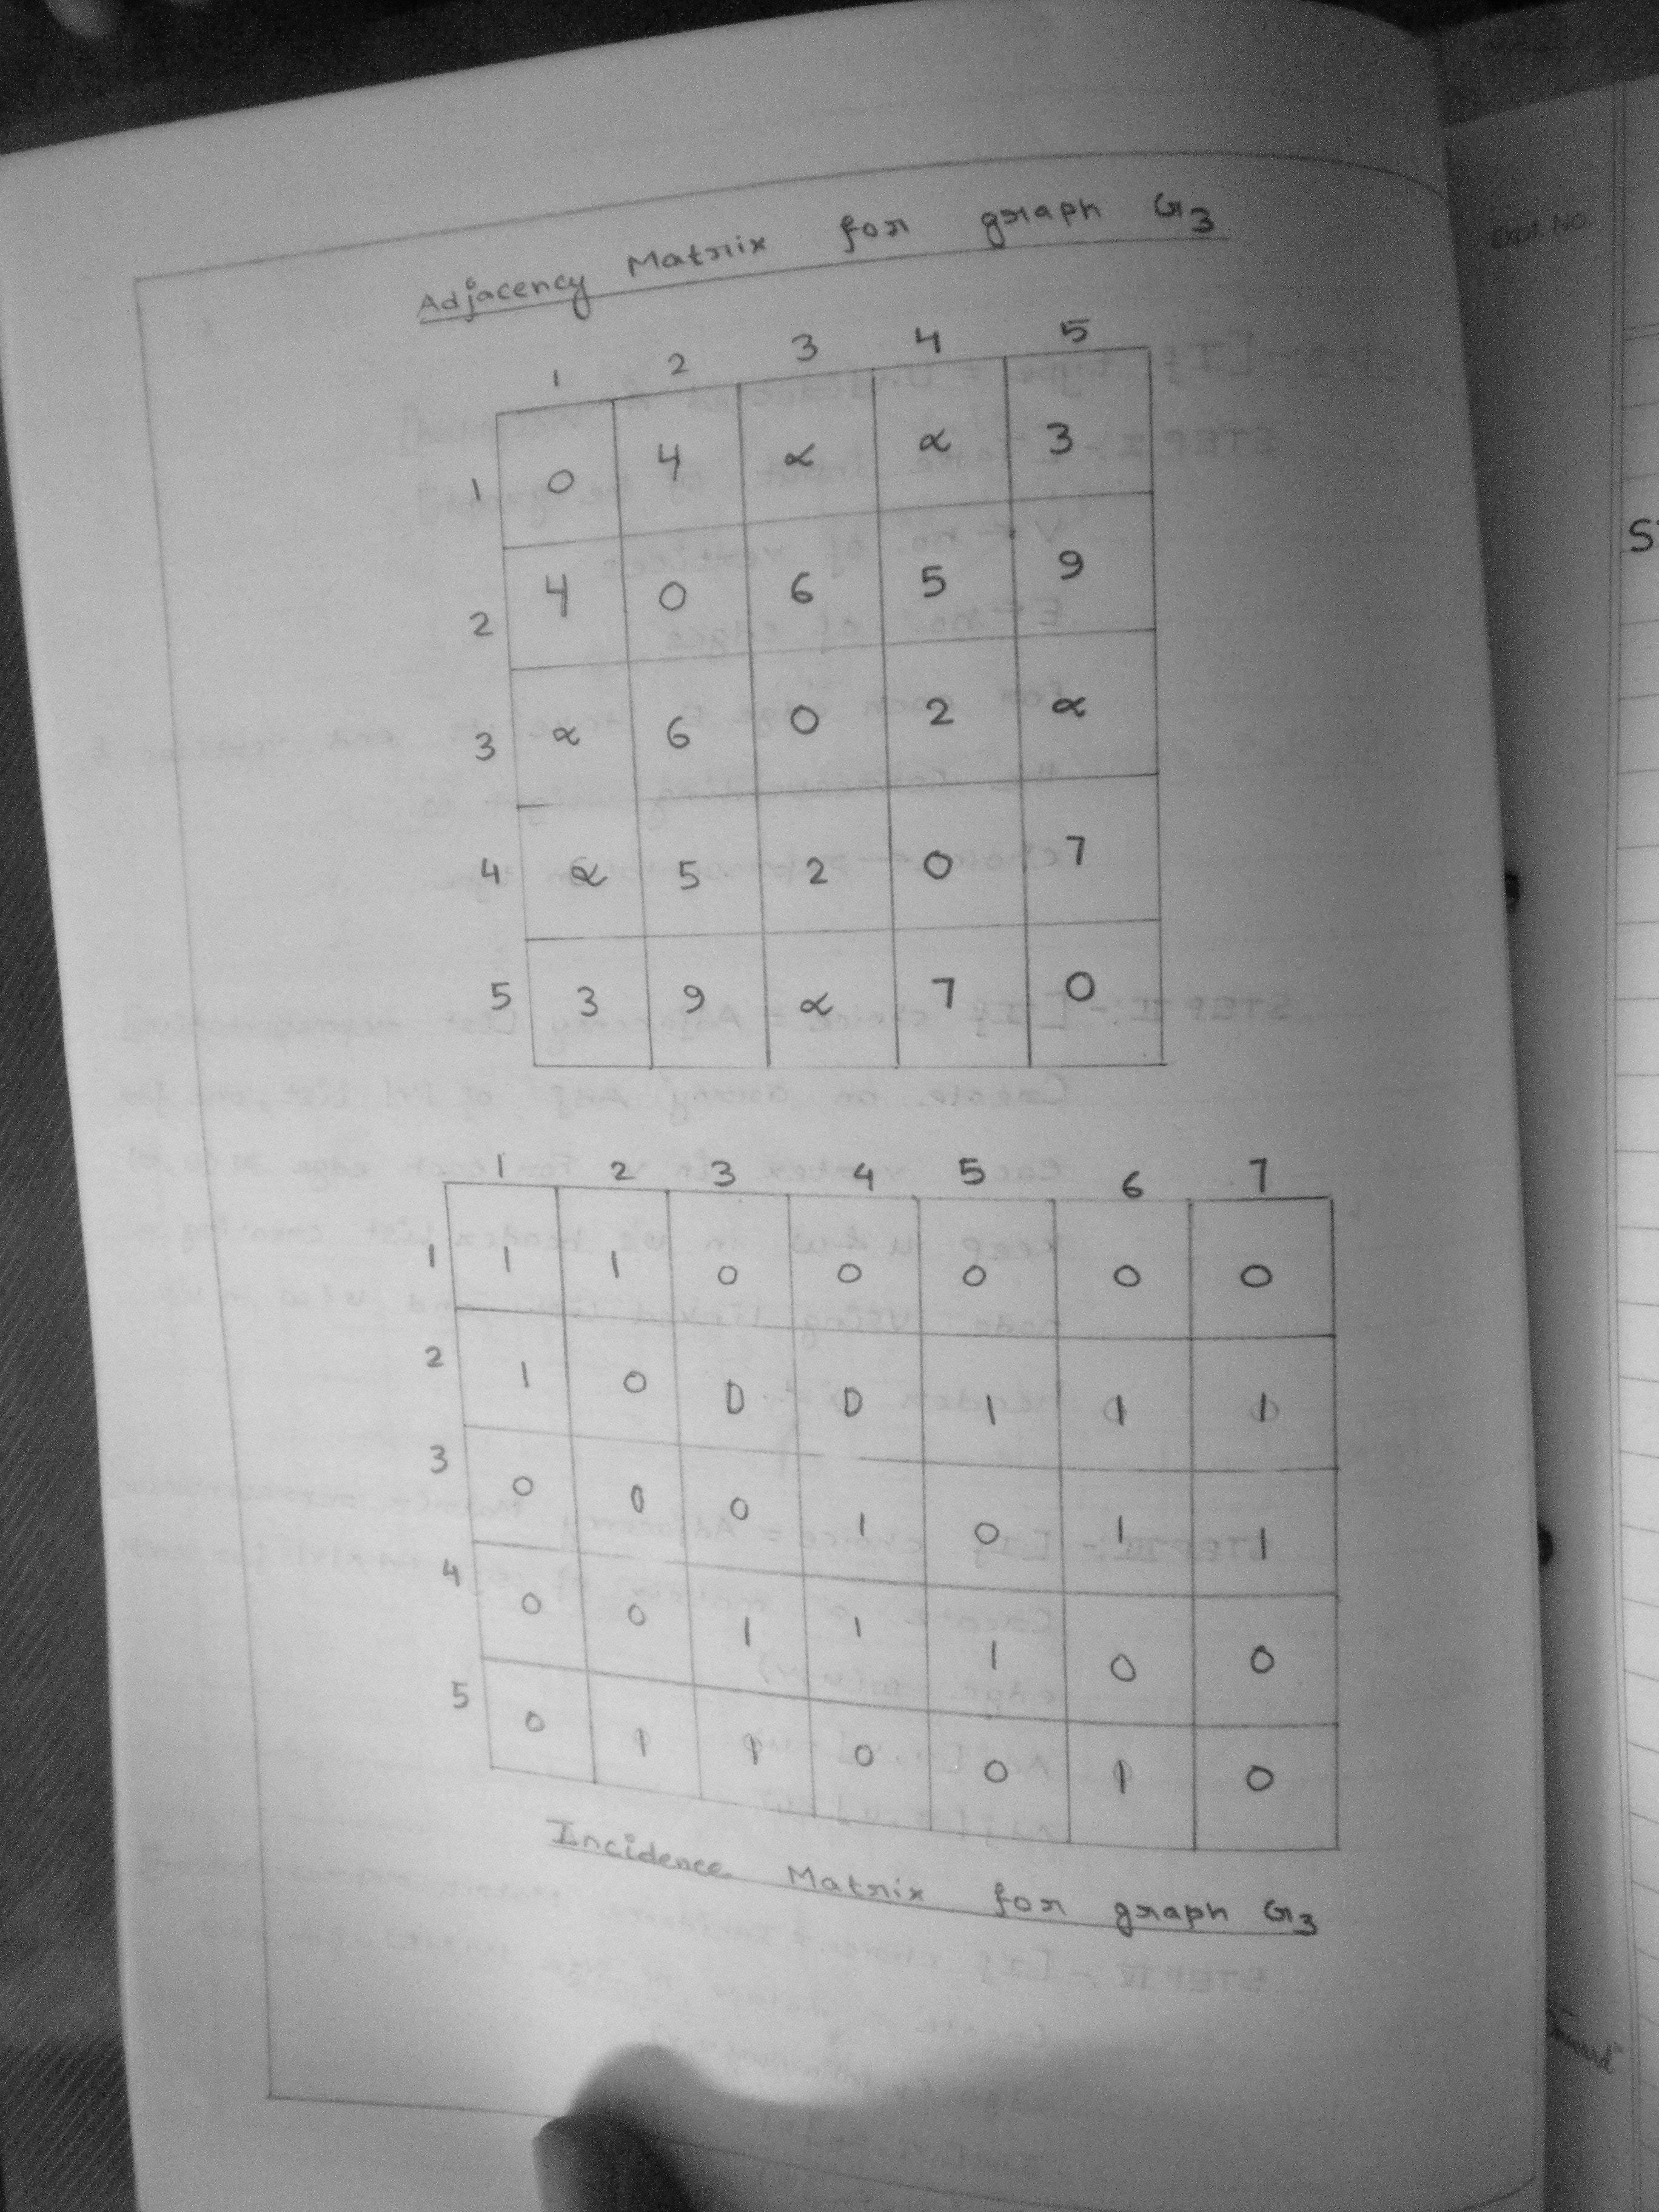 Adjacency Matrix for graph G3
1 2 3 4 5
1 0 4 ∝ ∝ 3
2 4 0 6 5 9
3 ∝ 6 0 2 ∝
4 ∝ 5 2 0 7
5 3 9 ∝ 7 0
1 2 3 4 5 6 7
1 1 1 0 0 0 0 0
2 1 0 0 0 1 1 1
3 0 0 0 1 0 1 1
4 0 0 1 1 1 0 0
5 0 1 1 0 0 1 0
Incidence Matrix for graph G3
Expt. No.